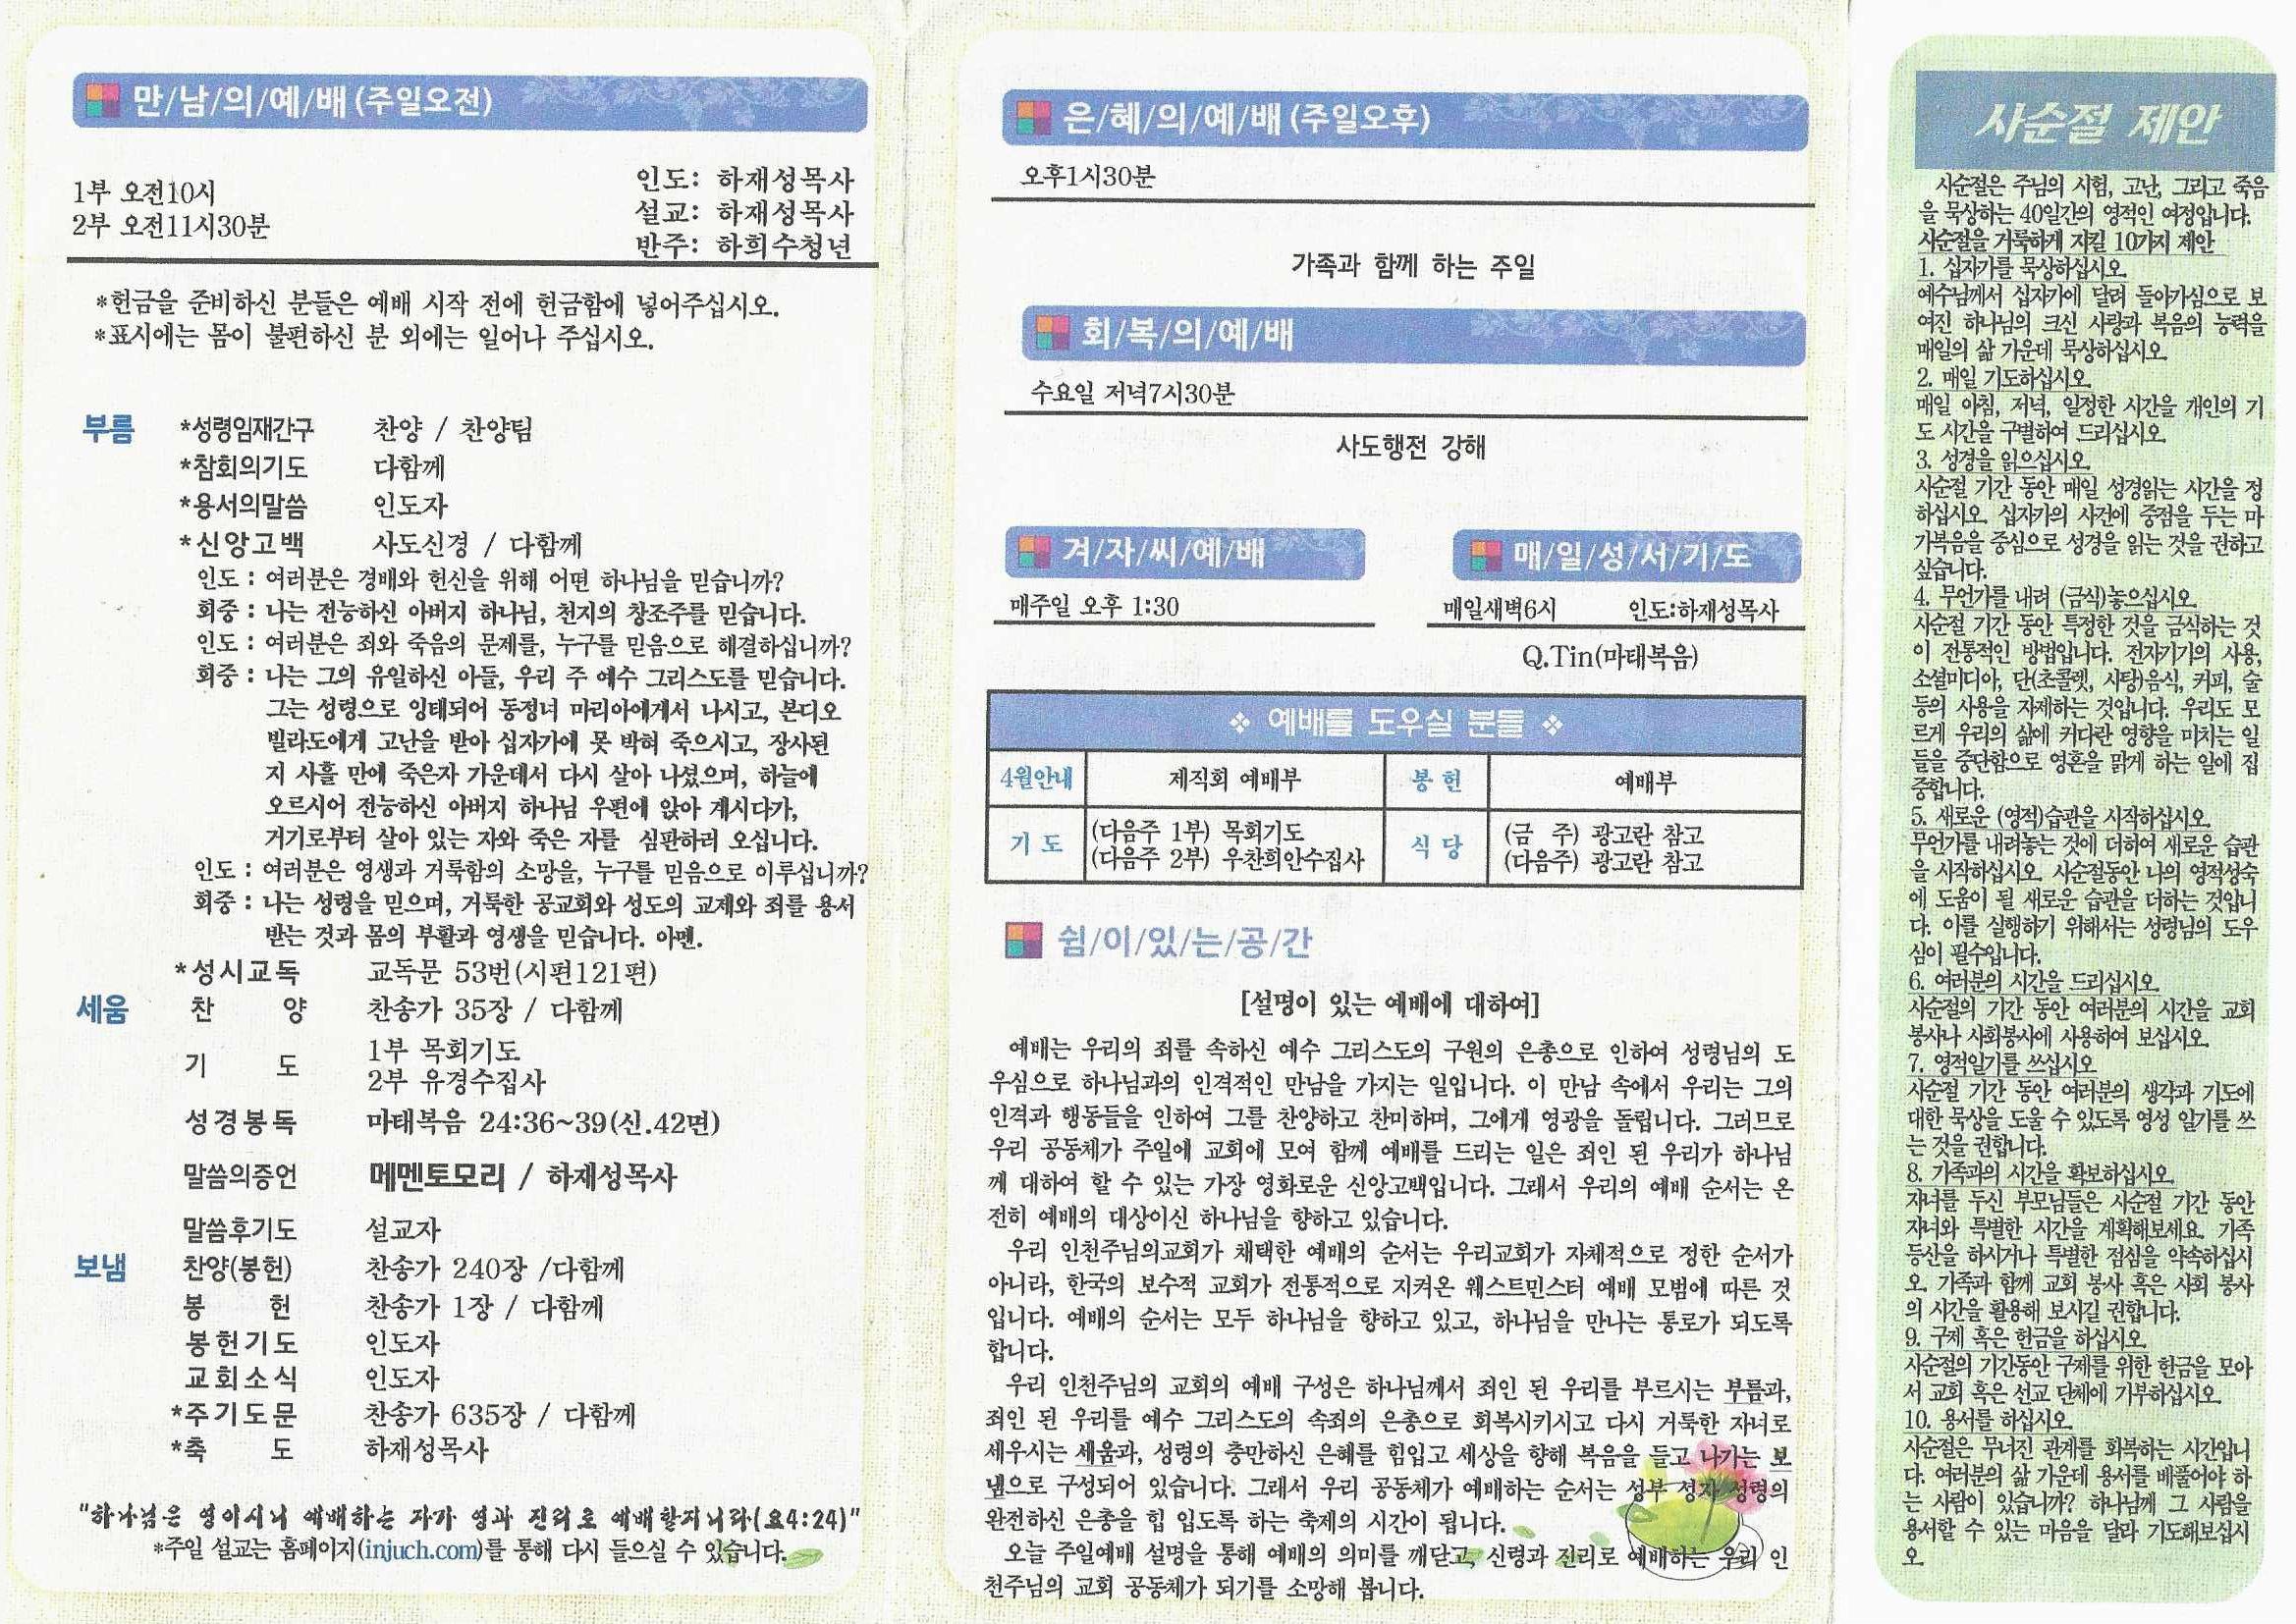 만/남/의/예/배(주일오전)
1부 오전10시
2부 오전11시30분
인도: 하재성목사
설교: 하재성목사
반주: 하희수청년
*헌금을 준비하신 분들은 예배 시작 전에 헌금함에 넣어주십시오.
*표시에는 몸이 불편하신 분 외에는 일어나 주십시오.
부름 *성령임재간구 찬양 / 찬양팀
*참회의기도 다함께
*용서의말씀 인도자
*신앙고백 사도신경 / 다함께
인도 : 여러분은 경배와 헌신을 위해 어떤 하나님을 믿습니까?
회중 : 나는 전능하신 아버지 하나님, 천지의 창조주를 믿습니다.
인도 : 여러분은 죄와 죽음의 문제를, 누구를 믿음으로 해결하십니까?
회중 : 나는 그의 유일하신 아들, 우리 주 예수 그리스도를 믿습니다.
그는 성령으로 잉태되어 동정녀 마리아에게서 나시고, 본디오
빌라도에게 고난을 받아 십자가에 못 박혀 죽으시고, 장사된
지 사흘 만에 죽은자 가운데서 다시 살아 나셨으며, 하늘에
오르시어 전능하신 아버지 하나님 우편에 앉아 계시다가,
거기로부터 살아 있는 자와 죽은 자를 심판하러 오십니다.
인도 : 여러분은 영생과 거룩함의 소망을, 누구를 믿음으로 이루십니까?
회중 : 나는 성령을 믿으며, 거룩한 공교회와 성도의 교제와 죄를 용서
받는 것과 몸의 부활과 영생을 믿습니다. 아멘.
*성시교독 교독문 53번(시편121편)
세움 찬 양 찬송가 35장 / 다함께
기 도 1부 목회기도
2부 유경수집사
성경봉독 마태복음 24:36~39(신.42면)
말씀의증언 메멘토모리 / 하재성목사
말씀후기도 설교자
보냄 찬양(봉헌) 찬송가 240장 /다함께
봉 헌 찬송가 1장 / 다함께
봉헌기도 인도자
교회소식 인도자
*주기도문 찬송가 635장 / 다함께
*축 도 하재성목사
"하나님은 영이시니 예배하는 자가 영과 진리로 예배할지니라(요4:24)"
*주일 설교는 홈페이지(injuch.com)를 통해 다시 들으실 수 있습니다.
은/혜/의/예/배(주일오후)
오후1시30분
가족과 함께 하는 주일
회/복/의/예/배
수요일 저녁7시30분
사도행전 강해
겨/자/씨/예/배
매주일 오후 1:30
매/일/성/서/기/도
매일새벽6시 인도:하재성목사
Q.Tin(마태복음)
❖ 예배를 도우실 분들 ❖
4월안내 제직회 예배부 봉 헌 예배부
기 도 (다음주 1부) 목회기도
(다음주 2부) 우찬희안수집사
식 당 (금 주) 광고란 참고
(다음주) 광고란 참고
쉼/이/있/는/공/간
[설명이 있는 예배에 대하여]
예배는 우리의 죄를 속하신 예수 그리스도의 구원의 은총으로 인하여 성령님의 도
우심으로 하나님과의 인격적인 만남을 가지는 일입니다. 이 만남 속에서 우리는 그의
인격과 행동들을 인하여 그를 찬양하고 찬미하며, 그에게 영광을 돌립니다. 그러므로
우리 공동체가 주일에 교회에 모여 함께 예배를 드리는 일은 죄인 된 우리가 하나님
께 대하여 할 수 있는 가장 영화로운 신앙고백입니다. 그래서 우리의 예배 순서는 온
전히 예배의 대상이신 하나님을 향하고 있습니다.
우리 인천주님의교회가 채택한 예배의 순서는 우리교회가 자체적으로 정한 순서가
아니라, 한국의 보수적 교회가 전통적으로 지켜온 웨스트민스터 예배 모범에 따른 것
입니다. 예배의 순서는 모두 하나님을 향하고 있고, 하나님을 만나는 통로가 되도록
합니다.
우리 인천주님의 교회의 예배 구성은 하나님께서 죄인 된 우리를 부르시는 부름과,
죄인 된 우리를 예수 그리스도의 속죄의 은총으로 회복시키시고 다시 거룩한 자녀로
세우시는 세움과, 성령의 충만하신 은혜를 힘입고 세상을 향해 복음을 들고 나가는 보
냄으로 구성되어 있습니다. 그래서 우리 공동체가 예배하는 순서는 성부 성자 성령의
완전하신 은총을 힙 입도록 하는 축제의 시간이 됩니다.
오늘 주일예배 설명을 통해 예배의 의미를 깨닫고, 신령과 진리로 예배하는 우리 인
천주님의 교회 공동체가 되기를 소망해 봅니다.
사순절 제안
사순절은 주님의 시험, 고난, 그리고 죽음
을 묵상하는 40일간의 영적인 여정입니다.
사순절을 거룩하게 지킬 10가지 제안
1. 십자가를 묵상하십시오.
예수님께서 십자가에 달려 돌아가심으로 보
여진 하나님의 크신 사랑과 복음의 능력을
매일의 삶 가운데 묵상하십시오.
2. 매일 기도하십시오.
매일 아침, 저녁, 일정한 시간을 개인의 기
도 시간을 구별하여 드리십시오.
3. 성경을 읽으십시오.
사순절 기간 동안 매일 성경읽는 시간을 정
하십시오. 십자가의 사건에 중점을 두는 마
가복음을 중심으로 성경을 읽는 것을 권하고
싶습니다.
4. 무언가를 내려 (금식)놓으십시오.
사순절 기간 동안 특정한 것을 금식하는 것
이 전통적인 방법입니다. 전자기기의 사용,
소셜미디아, 단(초콜렛, 사탕)음식, 커피, 술
등의 사용을 자제하는 것입니다. 우리도 모
르게 우리의 삶에 커다란 영향을 미치는 일
들을 중단함으로 영혼을 맑게 하는 일에 집
중합니다.
5. 새로운 (영적)습관을 시작하십시오.
무언가를 내려놓는 것에 더하여 새로운 습관
을 시작하십시오. 사순절동안 나의 영적성숙
에 도움이 될 새로운 습관을 더하는 것입니
다. 이를 실행하기 위해서는 성령님의 도우
심이 필수입니다.
6. 여러분의 시간을 드리십시오.
사순절의 기간 동안 여러분의 시간을 교회
봉사나 사회봉사에 사용하여 보십시오.
7. 영적일기를 쓰십시오
사순절 기간 동안 여러분의 생각과 기도에
대한 묵상을 도울 수 있도록 영성 일기를 쓰
는 것을 권합니다.
8. 가족과의 시간을 확보하십시오.
자녀를 두신 부모님들은 사순절 기간 동안
자녀와 특별한 시간을 계획해보세요. 가족
등산을 하시거나 특별한 점심을 약속하십시
오. 가족과 함께 교회 봉사 혹은 사회 봉사
의 시간을 활용해 보시길 권합니다.
9. 구제 혹은 헌금을 하십시오.
사순절의 기간동안 구제를 위한 헌금을 모아
서 교회 혹은 선교 단체에 기부하십시오.
10. 용서를 하십시오.
사순절은 무너진 관계를 회복하는 시간입니
다. 여러분의 삶 가운데 용서를 베풀어야 하
는 사람이 있습니까? 하나님께 그 사람을
용서할 수 있는 마음을 달라 기도해보십시
오.